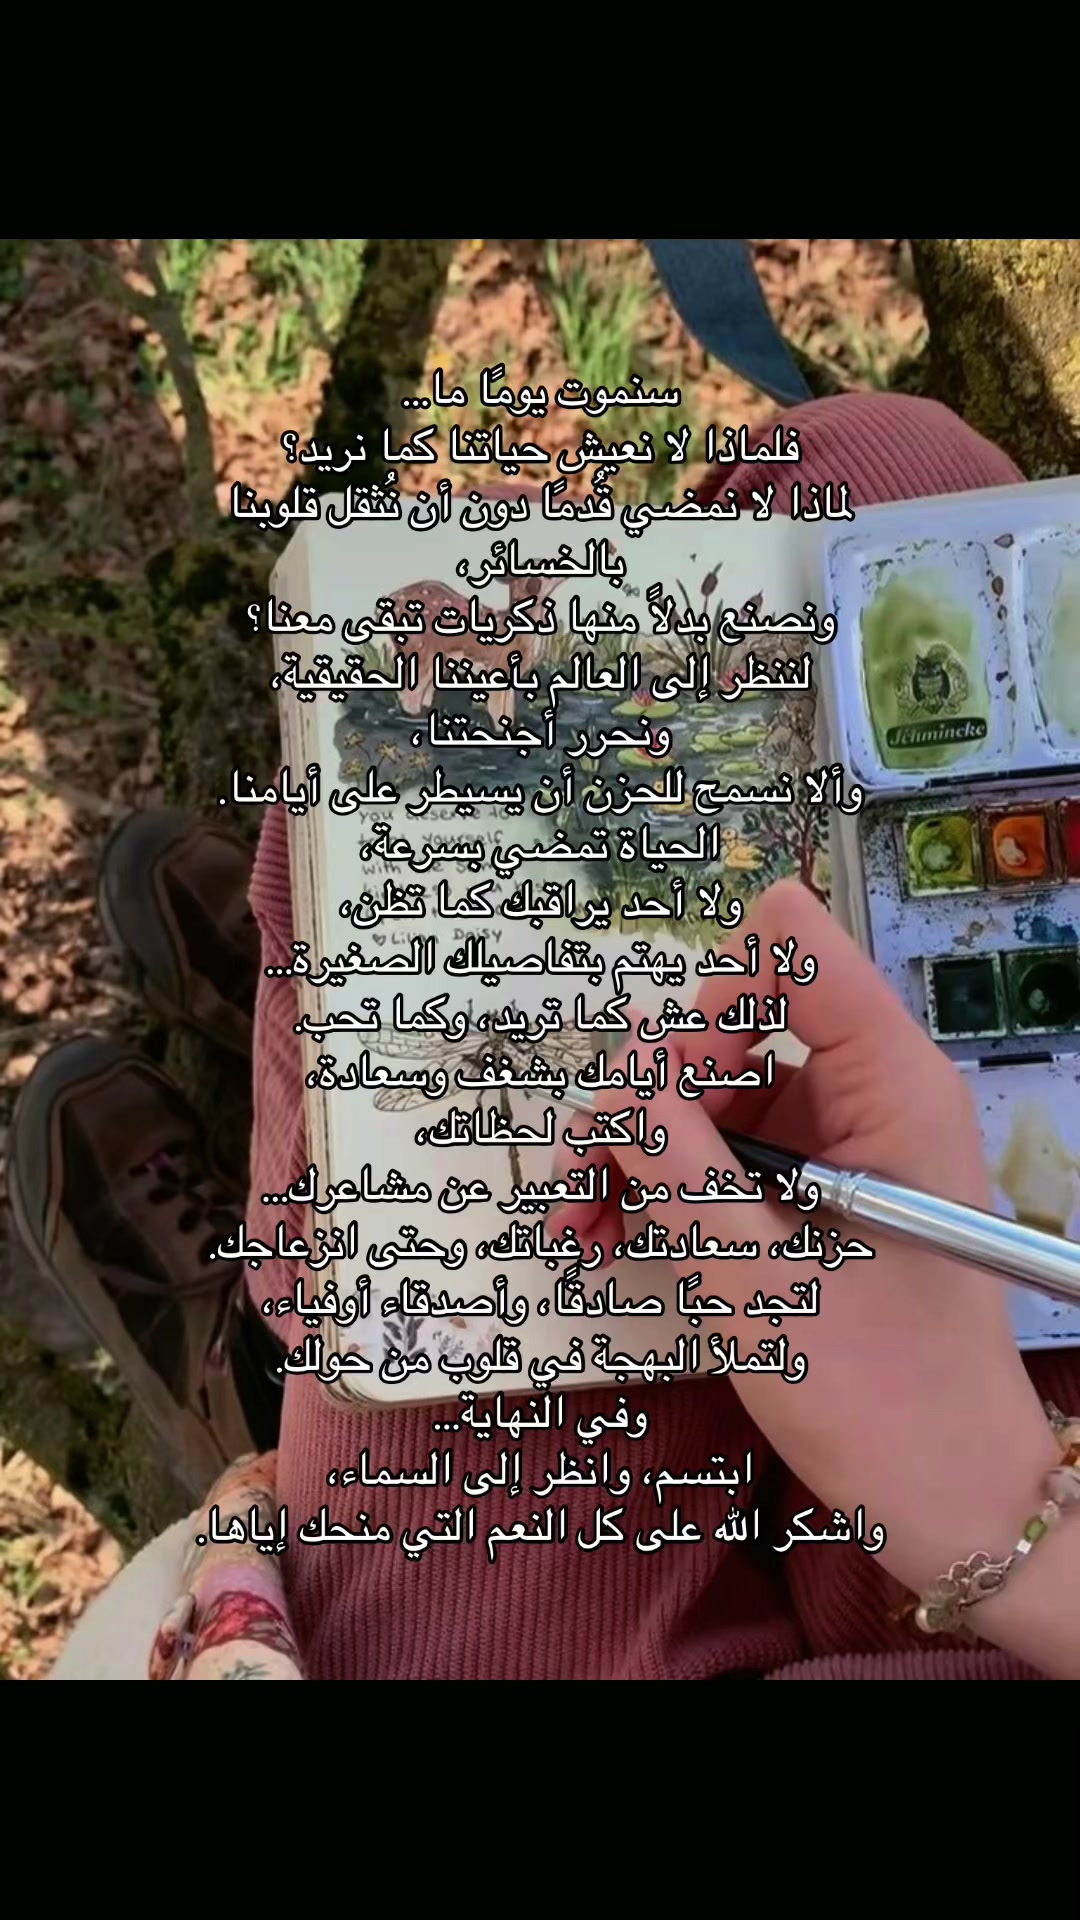 سنموت يومًا ما...
فلماذا لا نعيش حياتنا كما نريد؟
لماذا لا نمضي قُدمًا دون أن نُثقل قلوبنا
بالخسائر،
ونصنع بدلاً منها ذكريات تبقى معنا؟
لننظر إلى العالم بأعيننا الحقيقية،
ونحرر أجنحتنا،
وألا نسمح للحزن أن يسيطر على أيامنا.
الحياة تمضي بسرعة،
ولا أحد يراقبك كما تظن،
ولا أحد يهتم بتفاصيلك الصغيرة...
لذلك عش كما تريد، وكما تحب.
اصنع أيامك بشغف وسعادة،
واكتب لحظاتك،
ولا تخف من التعبير عن مشاعرك...
حزنك، سعادتك، رغباتك، وحتى انزعاجك.
لتجد حبًا صادقًا، وأصدقاء أوفياء،
ولتملأ البهجة في قلوب من حولك.
وفي النهاية...
ابتسم، وانظر إلى السماء،
واشكر الله على كل النعم التي منحك إياها.
Schmincke
you deserve to
yourself
with
Daisy